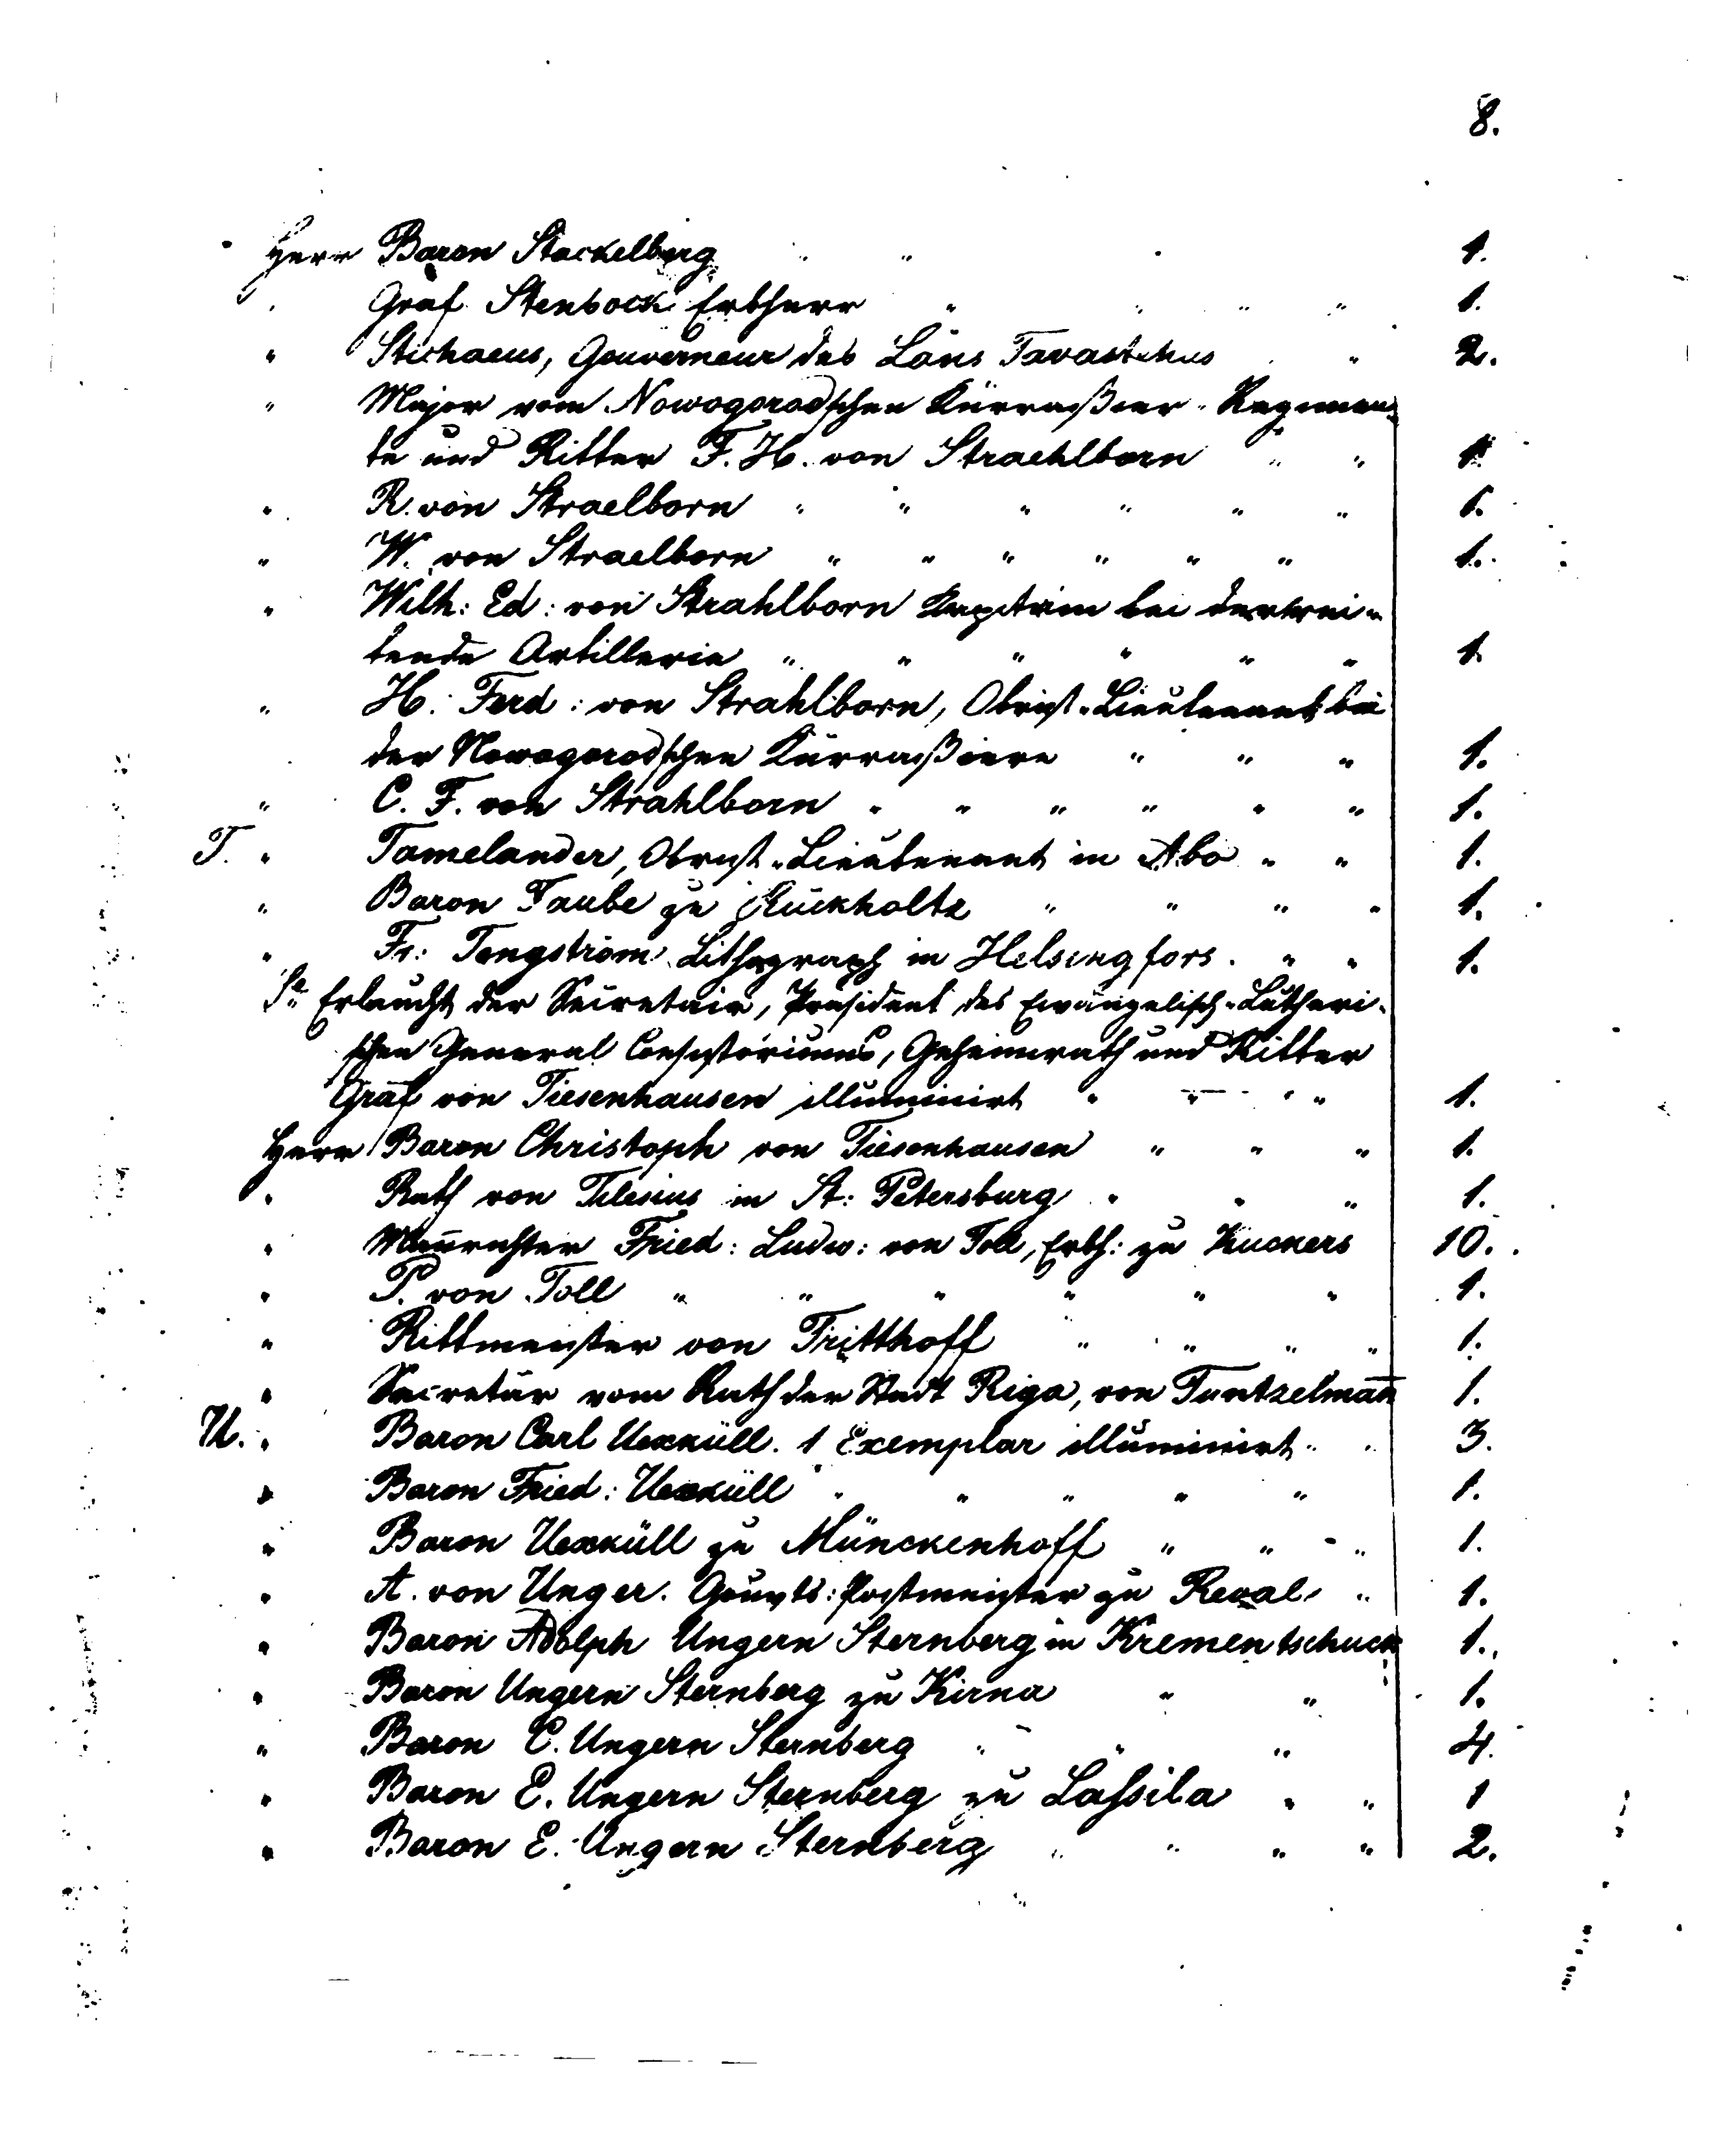 8.
Herr Baron Stackelberg " " " 1.
" Graf Stenbock Erbherr " " " " 1.
" Stichaeus, Gouverneur des Läns Tavastehus " " 2.
" Major vom Nowogorodschen Kürraßier-Regimen-
te und Ritter F. H. von Straehlborn " " 1
" R. von Straelborn " " " " " " 1.
" W. von Straelborn " " " " " " 1.
" Wilh: Ed: von Strahlborn Kapitain bei der rei-
tende Artillerie " " " " " " 1.
" H. Ferd: von Strahlborn, Obrist-Lieutenant bei
der Nowogorodschen Kürraßiere " " " 1.
" C. F. von Strahlborn " " " " " " 1.
T. " Tamelander, Obrist-Lieutenant in Abo " " 1.
" Baron Taube zu Rückholtz " " " " 1.
" Fr: Tengström Lithograph in Helsingfors. " " 1.
Sr Erlaucht der Secretair, Präsident des Evangelisch-Lutheri-
schen General Consistoriums, Geheimrath und Ritter
Graf von Tiesenhausen illuminirt " " " " 1.
Herr Baron Christoph von Tiesenhausen " " " 1.
" Rath von Tilesius in St: Petersburg " " " 1.
" Mannrichter Fried: Ludw: von Toll, Erbh: zu Kuckers 10.
" P. von Toll " " " " " " 1.
" Rittmeister von Tritthoff " " " " 1.
" Secretär vom Rath der Stadt Riga, von Tuntzelmann 1.
U. " Baron Carl Uexküll. 1 Exemplar illuminirt " " 3.
" Baron Fried: Uexküll " " " " " 1.
" Baron Uexküll zu Münckenhoff " " " " 1.
" A. von Unger. Gouvts: Postmeister zu Reval " " 1.
" Baron Adolph Ungern Sternberg in Krementschuck 1.
" Baron Ungern Sternberg zu Kirna " " 1.
" Baron C. Ungern Sternberg " " " 4.
" Baron E. Ungern Sternberg zu Laßila " " 1
" Baron E. Ungern Sternberg " " " " 2.